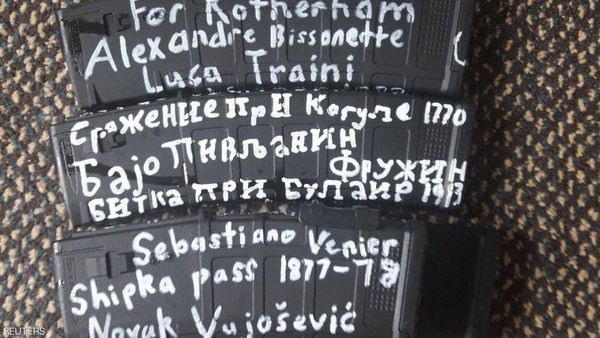 For Rotherham
Alexandre Bissonette
Luca Traini
Сражение при Кагуле 1770
Бајо Пивљанин
Фружин
Битка при Булаир 1913
Sebastiano Venier
Shipka pass 1877-78
Novak Vujošević
REUTERS